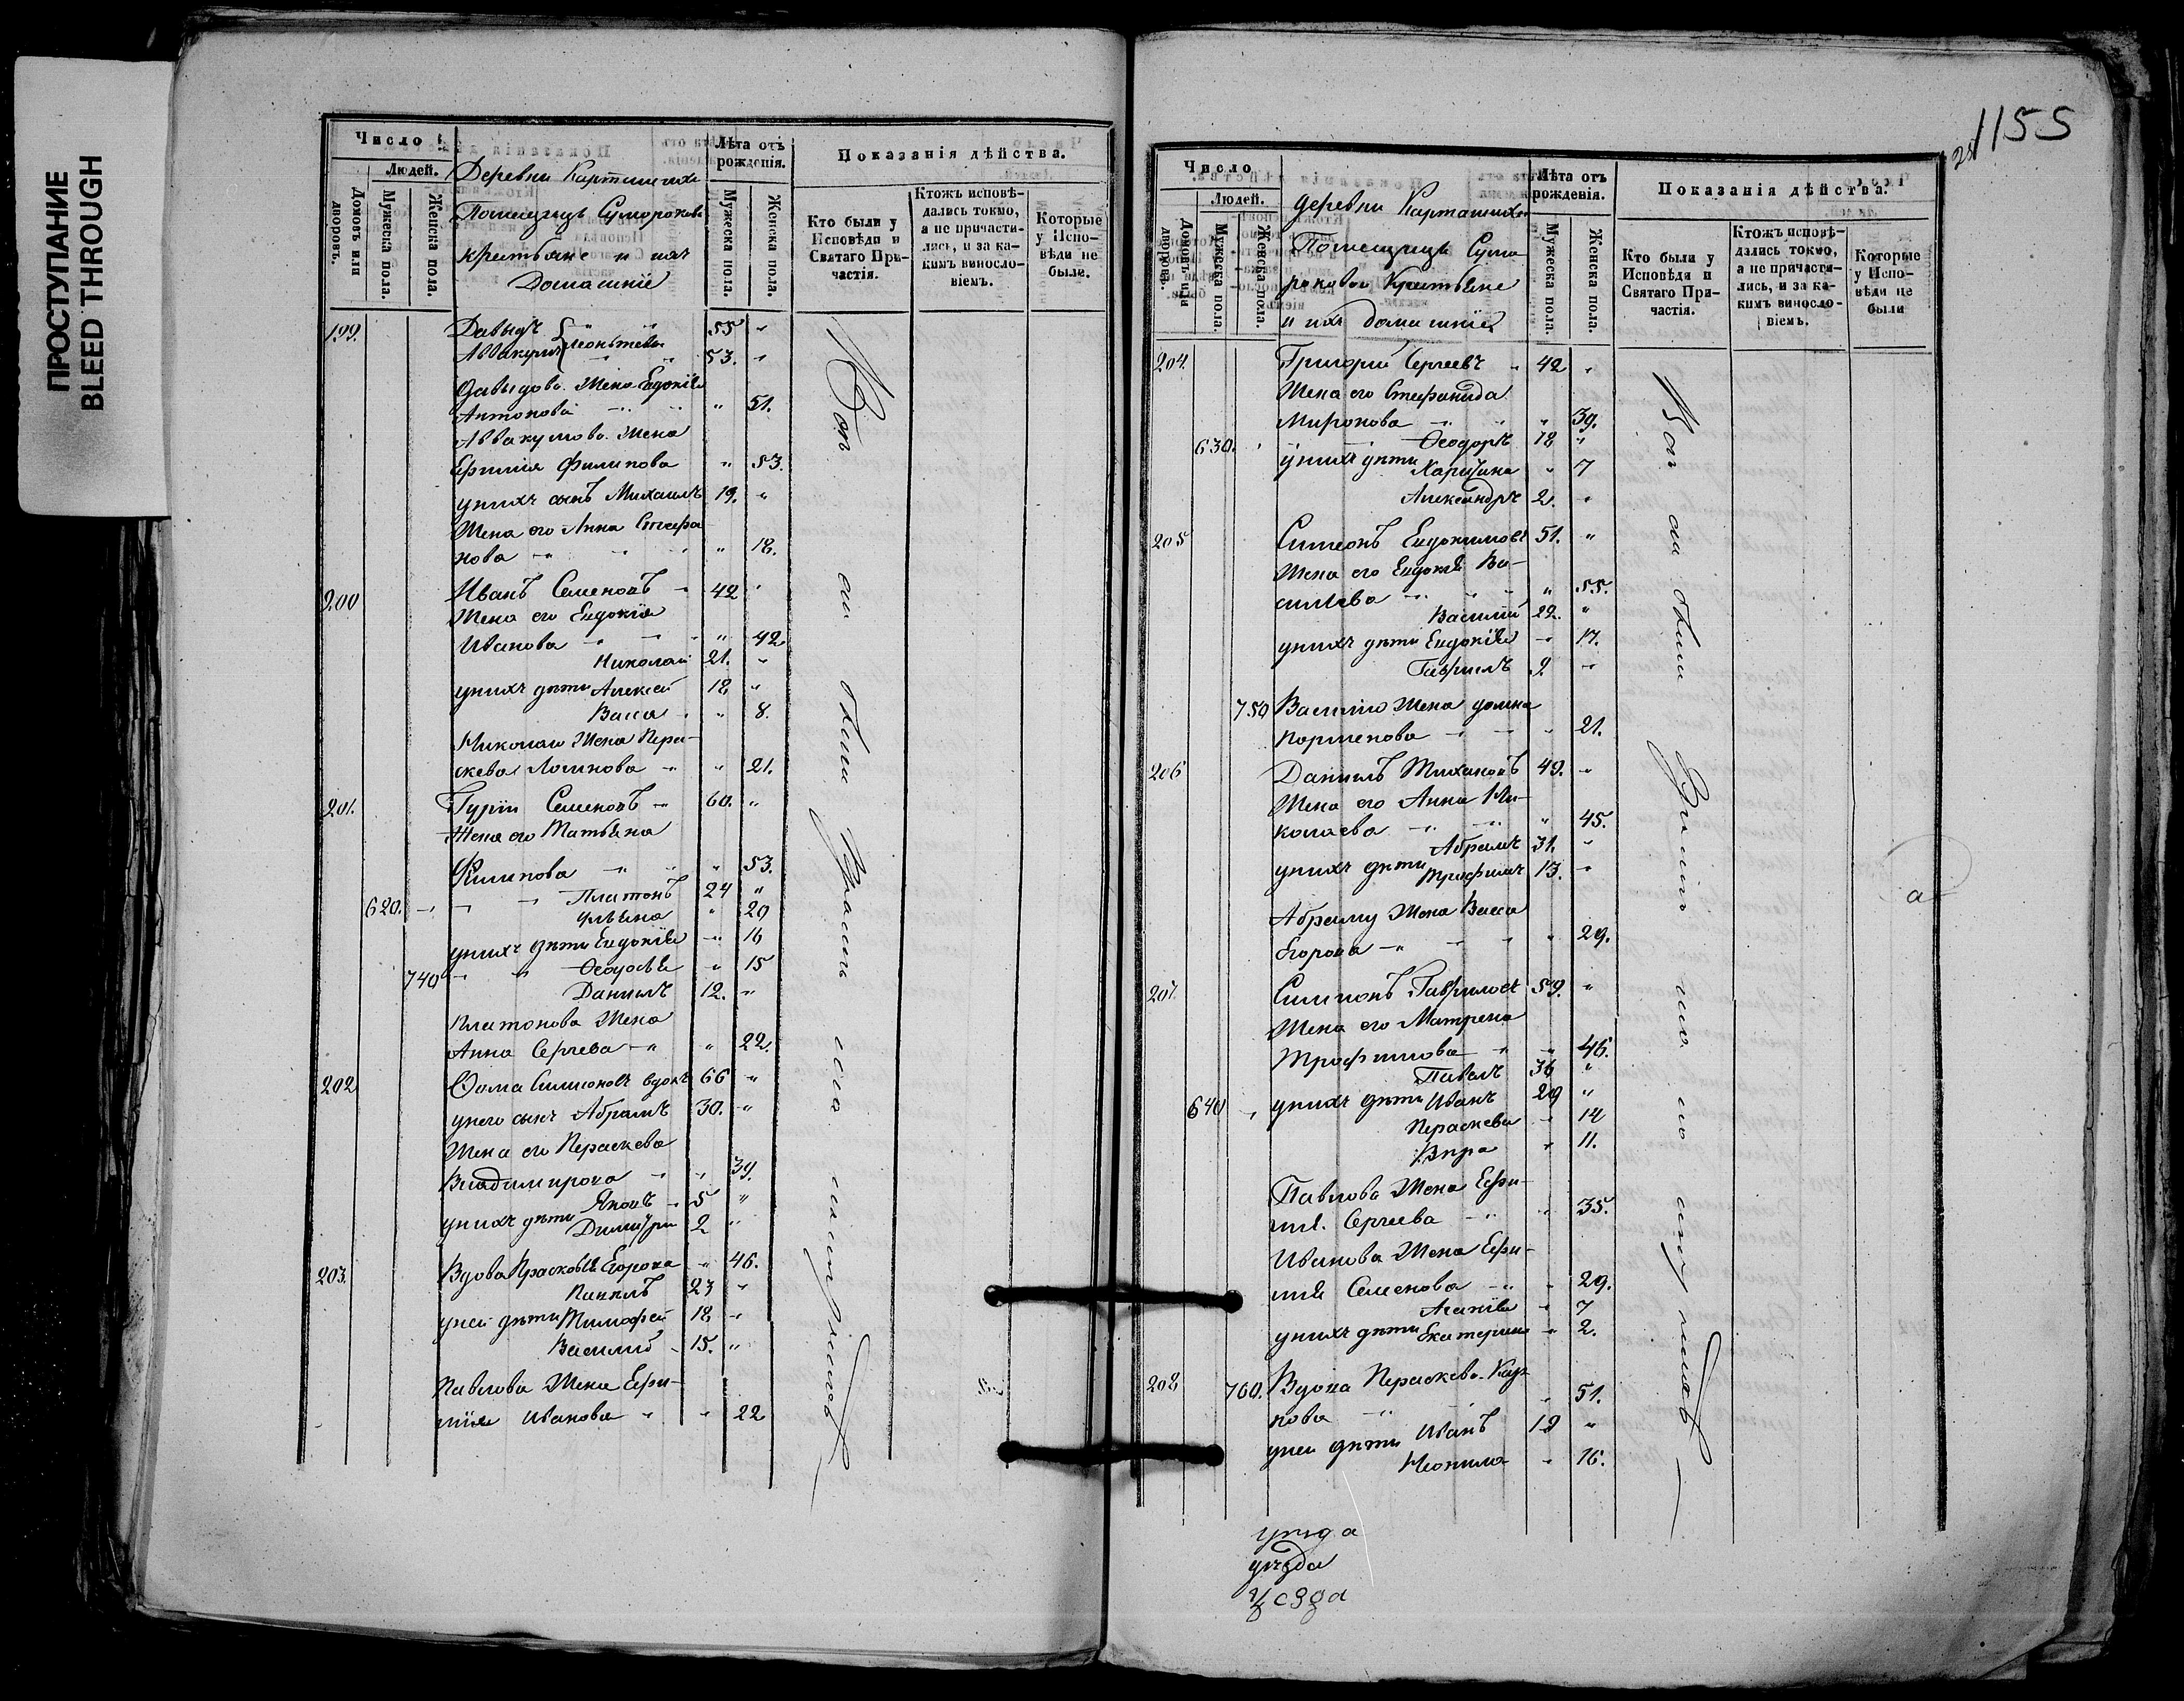 ПРОСТУПАНИЕ
BLEED THROUGH
Число
Людей.
Домовъ или дворовъ.
Мужеска пола.
Женска пола.
Деревни
Помещицы
крестьяне и ихъ
Домашніе
Лѣта отъ рожденія.
Мужеска пола.
Женска пола.
Показанія дѣйства.
Кто были у Исповѣди и Святаго Причастія.
Ктожъ исповѣдались токмо, а не причастились, и за какимъ винословіемъ.
Которые у Исповѣди не были.
199. Давыдъ 55 "
Аввакумъ Леонтьевы 53. "
Давыдова Жена Евдокія
Антонова " 51.
Аввакумова Жена
Ефимія Филипова " 53.
у нихъ сынъ Михаилъ 19. "
Жена его Анна Стефа
нова " 18.
200 Иванъ Семеновъ 42 "
Жена его Евдокія
Иванова " 42
Николай 21. "
у нихъ дѣти Алексей 18 "
Васса " 8.
Николая Жена Пара-
скева Логинова " 21.
201. Гурій Семеновъ 60. "
Жена его Татьяна
Филипова " 53.
620. Платонъ 24 "
Ульяна " 20
у нихъ дѣти Евдокія " 16
740 Ѳеодосья " 15
Данилъ 12. "
Платонова Жена
Анна Сергеева " 22.
202 Ѳома Симионовъ вдовъ 66 "
у него сынъ Абрамъ 30. "
Жена его Параскева
Владимирова " 39.
Яковъ 5 "
у нихъ дѣти Димитрий 2 "
203. Вдова Прасковья Егорова " 46.
23 "
у ней дѣти Тимофей 18 "
Василий 15. "
Павлова Жена Ефи-
мія Иванова " 22
1155
Число
Людей.
Домовъ или дворовъ.
Мужеска пола.
Женска пола.
деревни
Помещицы Сума
роковой Крестьяне
и ихъ домашніе
Лѣта отъ рожденія.
Мужеска пола.
Женска пола.
Показанія дѣйства.
Кто были у Исповѣди и Святаго Причастія.
Ктожъ исповѣдались токмо, а не причастились, и за какимъ винословіемъ.
Которые у Исповѣди не были
204. Григорій Сергеевъ 42 "
Жена его Стефанида
Миронова " 39.
630. Ѳеодоръ 18 "
у нихъ дѣти Харитина " 7
Александръ 2. "
205 Симеонъ Евдокимовъ 51. "
Жена его Евдокія Ва-
сильева " 55.
Василій 22. "
у нихъ дѣти Евдокія " 17.
Гаврилъ 9 "
750 Василія Жена Домна
Парменова " 21.
206 Данилъ 49. "
Жена его Анна Ни-
колаева " 45.
Абрамъ 31. "
у нихъ дѣти Трофимъ 13. "
Абраму Жена Васса
Егорова " 29.
207. Симионъ Гавриловъ 59. "
Жена его Матрена
Трофимова " 46.
Павелъ 36 "
640 у нихъ дѣти Иванъ 29 "
Параскева " 14
Вѣра " 11.
Павлова Жена Ефи-
мія Сергеева " 35.
Иванова Жена Ефи-
мія Семенова " 29.
7
у нихъ дѣти Екатерина " 2.
208 760. Вдова Параскева Кар
пова " 51.
у ней дѣти Иванъ 19 "
Неонила " 16.
уѣзда
уѣзда